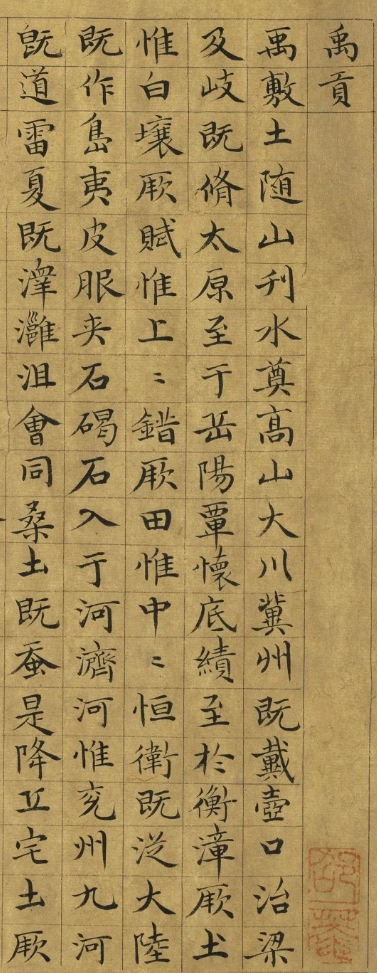 禹貢
禹敷土随山刋水奠高山大川冀州既戴壺口治梁
及岐既脩太原至于岳陽覃懷底績至於衡漳厥土
惟白壤厥賦惟上〻錯厥田惟中〻恒衛既從大陸
既作島夷皮服夾石碣石入于河濟河惟兖州九河
既道雷夏既澤灉沮會同桑土既蚕是降丘宅土厥